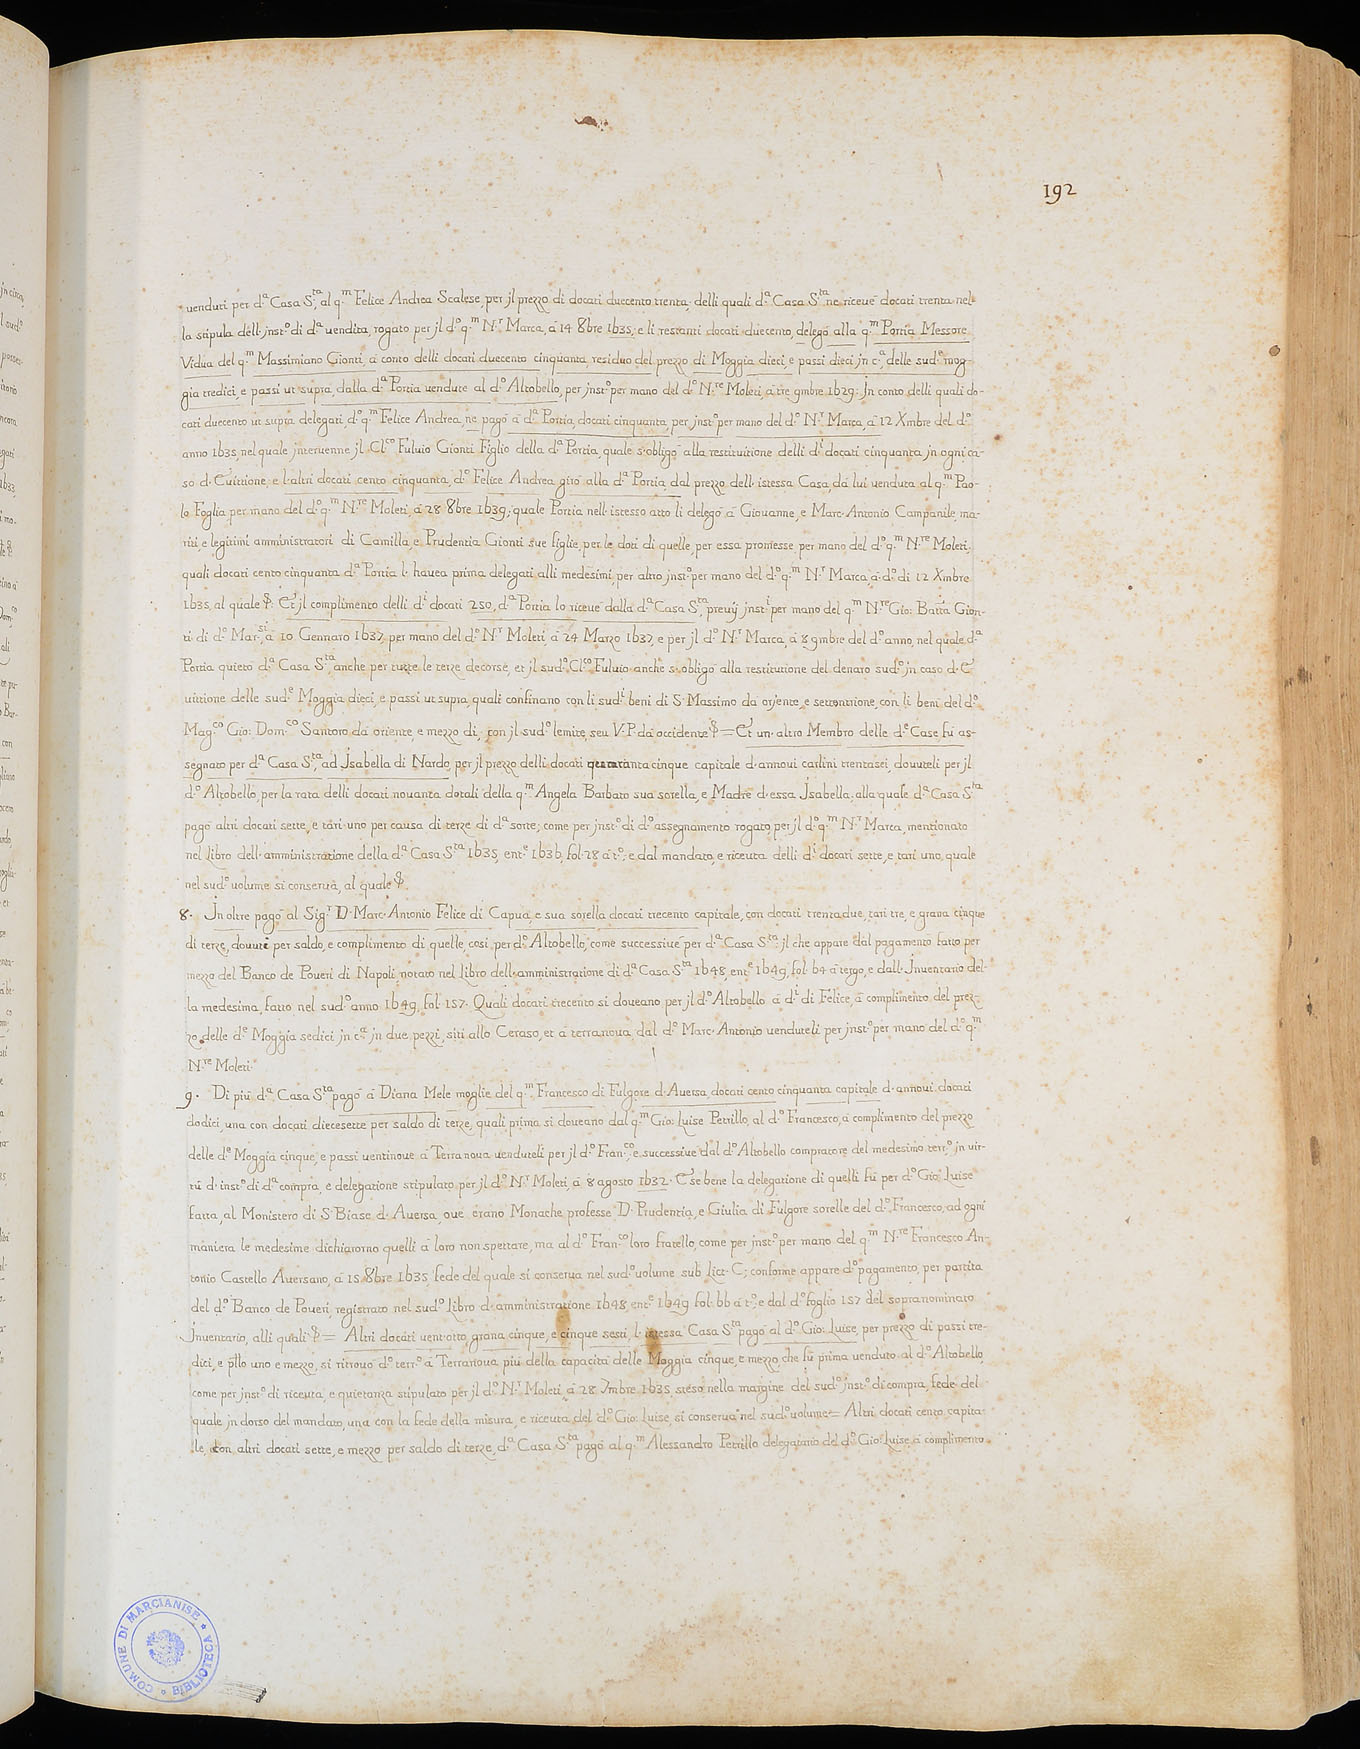 192
uenduti per d.ª Casa S.ta, al q.m Felice Andrea Scalese, per jl prezzo di docati duecento trenta, delli quali d.ª Casa S.ta ne riceuè docati trenta nel-
la stipula dell'jnst.º di d.ª uendita, rogato per jl d.º q.m N.r Marca, à 14 8bre 1635; e li restanti docati duecento, delegò alla q.m Portia Messore
Vidua del q.m Massimiano Gionti, à conto delli docati duecento cinquanta, residuo del prezzo di Moggia dieci, e passi dieci jn c.ª delle sud.e mog-
gia tredici, e passi ut supra, dalla d.ª Portia uendute al d.º Altobello, per jnst.º per mano del d.º N.re Moleti, à tre 9mbre 1629: Jn conto delli quali do-
cati duecento ut supra delegati, d.º q.m Felice Andrea, ne pagò à d.ª Portia, docati cinquanta, per jnst.º per mano del d.º N.r Marca, à 12 Xmbre del d.º
anno 1635, nel quale jnteruenne jl Cl.co Fuluio Gionti Figlio della d.ª Portia, quale s'obligò alla restituitione delli d.i docati cinquanta jn ogni ca-
so d'Euittione; e l'altri docati cento cinquanta, d.º Felice Andrea girò alla d.ª Portia, dal prezzo dell'istessa Casa, da lui uenduta al q.m Pao-
lo Foglia per mano del d.º q.m N.re Moleti, à 28 8bre 1639; quale Portia nell'istesso atto li delegò à Giouanne, e Marc'Antonio Campanile, ma-
riti, e legitimi amministratori di Camilla, e Prudentia Gionti sue figlie, per le doti di quelle, per essa promesse, per mano del d.º q.m N.re Moleti.
quali docati cento cinquanta d.ª Portia l'hauea prima delegati alli medesimi, per altro jnst.º per mano del d.º q.m N.r Marca, à d.º di 12 Xmbre
1635, al quale &. Et jl complimento delli d.i docati 250, d.ª Portia lo riceuè dalla d.ª Casa S.ta, preuij jnst.i per mano del q.m N.re Gio: Batta Gion-
ti di d.º Mar.si, à 10 Gennaro 1637, per mano del d.º N.r Moleti, à 24 Marzo 1637, e per jl d.º N.r Marca, à 8 9mbre del d.º anno, nel quale d.ª
Portia quietò d.ª Casa S.ta anche per tutte le terze decorse, et jl sud.º Cl.co Fuluio anche s'obligò alla restitutione del denaro sud.º jn caso d'E
uittione delle sud.e Moggia dieci, e passi ut supra, quali confinano con li sud.i beni di S. Massimo da orjente, e settentrione, con li beni del d.º
Mag.co Gio: Dom.co Santoro da oriente, e mezzo dì, con jl sud.º lemite, seu V.P. da occidente & = Et un'altro Membro delle d.e Case, fù as-
segnato per d.ª Casa S.ta, ad Jsabella di Nardo, per jl prezzo delli docati quarantacinque capitale d'annoui carlini trentasei, douuteli per jl
d.º Altobello, per la rata delli docati nouanta dotali della q.m Angela Barbato sua sorella, e Madre d'essa Jsabella; alla quale d.ª Casa S.ta
pagò altri docati sette, e tarì uno per causa di terze di d.ª sorte; come per jnst.º di d.º assegnamento rogato per jl d.º q.m N.r Marca, mentionato
nel Libro dell'amministratione della d.ª Casa S.ta 1635, ent.e 1636, fol. 28 à t.º; e dal mandato, e riceuta delli d.i docati sette, e tarì uno, quale
nel sud.º uolume si conserua, al quale &.
8. Jn oltre pagò al Sig.r D. Marc'Antonio Felice di Capua, e sua sorella docati trecento capitale, con docati trentadue, tarì tre, e grana cinque
di terze, douute per saldo, e complimento di quelle, così per d.º Altobello, come successiue per d.ª Casa S.ta: jl che appare dal pagamento fatto per
mezzo del Banco de Poueri di Napoli, notato nel Libro dell'amministratione di d.ª Casa S.ta 1648, ent.e 1649, fol. 64 à tergo, e dall'Jnuentario del-
la medesima, fatto nel sud.º anno 1649, fol. 157. Quali docati trecento si doueano per jl d.º Altobello à d.i di Felice, à complimento del prez-
zo delle d.e Moggia sedici jn c.ª jn due pezzi, siti allo Ceraso, et à terranoua, dal d.º Marc'Antonio uenduteli per jnst.º per mano del d.º q.m
N.re Moleti.
9. Di più d.ª Casa S.ta pagò à Diana Mele moglie del q.m Francesco di Fulgore d'Auersa, docati cento cinquanta capitale d'annoui docati
dodici, una con docati diecesette per saldo di terze, quali prima si doueano dal q.m Gio: Luise Petrillo, al d.º Francesco, à complimento del prezzo
delle d.e Moggia cinque, e passi uentinoue à Terranoua uenduteli per jl d.º Fran.co, e successiue dal d.º Altobello compratore del medesimo terr.º jn uir-
tù d'inst.º di d.ª compra, e delegatione stipulato per jl d.º N.r Moleti, à 8 agosto 1632. E se bene la delegatione di quelli fù per d.º Gio: Luise
fatta, al Monistero di S. Biase d'Auersa, oue erano Monache professe D. Prudentia, e Giulia di Fulgore sorelle del d.º Francesco, ad ogni
maniera le medesime dichiarorno quelli à loro non spettare, ma al d.º Fran.co loro fratello, come per jnst.º per mano del q.m N.re Francesco An-
tonio Castello Auersano, à 15 8bre 1635, fede del quale si conserua nel sud.º uolume sub litt. C; conforme appare d.º pagamento, per partita
del d.º Banco de Poueri, registrato nel sud.º Libro d'amministratione 1648, ent.e 1649 fol. 66 à t.º, e dal d.º foglio 157 del sopranominato
Jnuentario, alli quali & = Altri docati uent'otto, grana cinque, e cinque sesti l'istessa Casa S.ta pagò al d.º Gio: Luise, per prezzo di passi tre-
dici, e p.llo uno e mezzo, si ritrouò d.º terr.º à Terranoua più della capacità delle Moggia cinque, e mezzo, che fù prima uenduto al d.º Altobello,
come per jnst.º di riceuta, e quietanza stipulato per jl d.º N.r Moleti, à 28 7mbre 1635, steso nella margine del sud.º jnst.º di compra, fede del
quale jn dorso del mandato, una con la fede della misura, e riceuta del d.º Gio: Luise, si conserua nel sud.º uolume = Altri docati cento, capita-
le, con altri docati sette, e mezzo per saldo di terze, d.ª Casa S.ta pagò al q.m Alessandro Petrillo delegatario del d.º Gio: Luise à complimento
COMUNE DI MARCIANISE * BIBLIOTECA